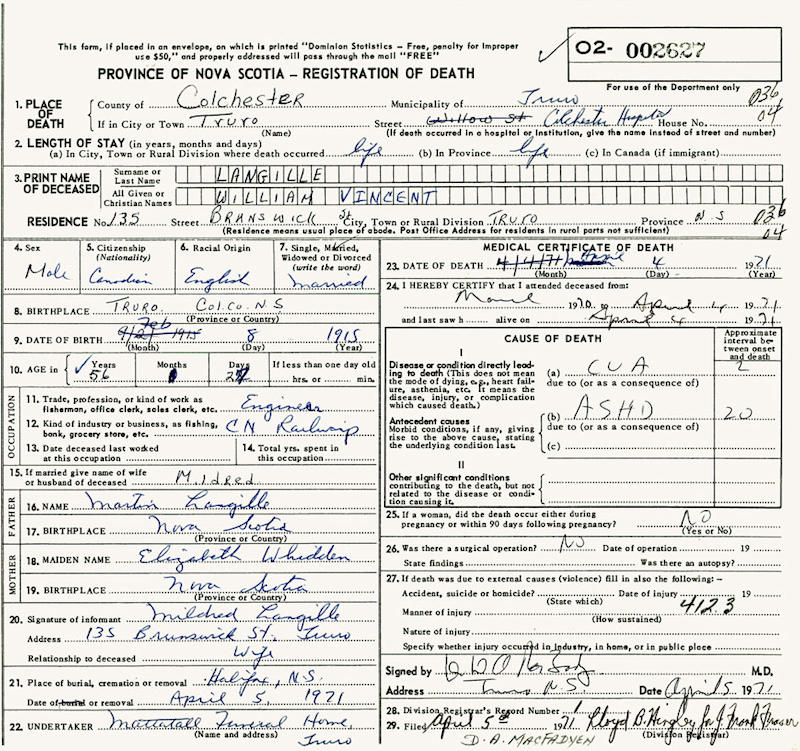 This form, if placed in an envelope, on which is printed "Dominion Statistics – Free, penalty for improper
use $50," and properly addressed will pass through the mail "FREE"
O2- 002627
PROVINCE OF NOVA SCOTIA – REGISTRATION OF DEATH
For use of the Department only
1. PLACE OF DEATH County of Colchester Municipality of Truro 036
If in City or Town Truro Street Willow St Colchester Hospital House No. 04
(Name) (If death occurred in a hospital or Institution, give the name instead of street and number)
2. LENGTH OF STAY (in years, months and days)
(a) In City, Town or Rural Division where death occurred life (b) In Province life (c) In Canada (if immigrant)
3. PRINT NAME OF DECEASED Surname or Last Name LANGILLE
All Given or Christian Names WILLIAM VINCENT
RESIDENCE No. 135 Street BRANSWICK St City, Town or Rural Division TRURO Province N S 036
(Residence means usual place of abode. Post Office Address for residents in rural parts not sufficient) 04
4. Sex Male
5. Citizenship (Nationality) Canadian
6. Racial Origin English
7. Single, Married, Widowed or Divorced (write the word) Married
8. BIRTHPLACE TRURO COLCO. N S
(Province or Country)
9. DATE OF BIRTH Feb 8 1915
(Month) (Day) (Year)
10. AGE in Years Months Days If less than one day old
56 hrs. or min.
OCCUPATION
11. Trade, profession, or kind of work as fisherman, office clerk, sales clerk, etc. Engineer
12. Kind of industry or business, as fishing, bonk, grocery store, etc. CN Railways
13. Date deceased last worked at this occupation
14. Total yrs. spent in this occupation.
15. If married give name of wife or husband of deceased Mildred
FATHER
16. NAME Martin Langille
17. BIRTHPLACE Nova Scotia
(Province or Country)
MOTHER
18. MAIDEN NAME Elizabeth Whidden
19. BIRTHPLACE Nova Scotia
(Province or Country)
20. Signature of informant Mildred Langille
Address 135 Brunswick St. Truro
Relationship to deceased Wife
21. Place of burial, cremation or removal Halifax, N.S.
Date of burial or removal April 5, 1971
22. UNDERTAKER Mattatall Funeral Home,
(Name and address) Truro
MEDICAL CERTIFICATE OF DEATH
23. DATE OF DEATH 4/4/71 4 1971
(Month) (Day) (Year)
24. I HEREBY CERTIFY that I attended deceased from:
1970 April 4 1971
and last saw h alive on April 4 1971
CAUSE OF DEATH
Approximate interval between onset and death
I
Disease or condition directly leading to death (This does not mean the mode of dying, e.g., heart failure, asthenia, etc. It means the disease, injury, or complication which caused death.)
(a) CVA 2
due to (or as a consequence of)
Antecedent causes
Morbid conditions, if any, giving rise to the above cause, stating the underlying condition last.
(b) ASHD 20
due to (or as a consequence of)
(c)
II
Other significant conditions contributing to the death, but not related to the disease or condition causing it.
25. If a woman, did the death occur either during pregnancy or within 90 days following pregnancy? NO
(Yes or No)
26. Was there a surgical operation? NO Date of operation 19
State findings Was there an autopsy?
27. If death was due to external causes (violence) fill in also the following:–
Accident, suicide or homicide? Date of injury 19
(State which) 4123
Manner of injury
(How sustained)
Nature of injury
Specify whether injury occurred in industry, in home, or in public place
Signed by M.D.
Address Truro N.S. Date April 5 1971
28. Division Registrar's Record Number
29. Filed April 5th 1971 Lloyd B. Hingley for J. Frank Fraser
(Division Registrar)
D. A. MACFADYEN